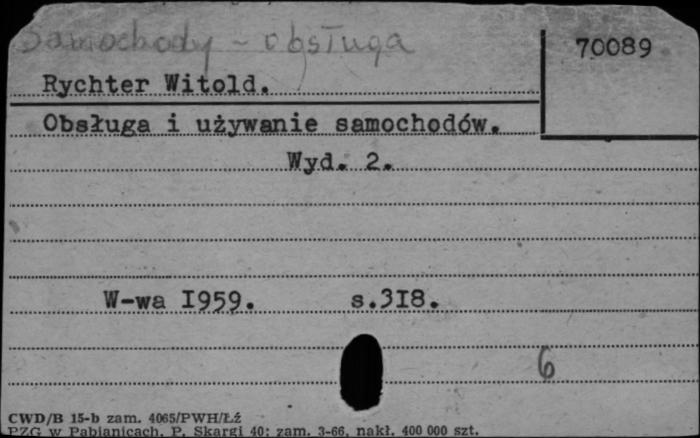 Samochody - obsługa
70089
Rychter Witold.
Obsługa i używanie samochodów.
Wyd. 2.
W-wa I959. s.3I8.
6
CWD/B 15-b zam. 4065/PWH/Łź
PZG w Pabianicach, P. Skargi 40; zam. 3-66, nakł. 400 000 szt.